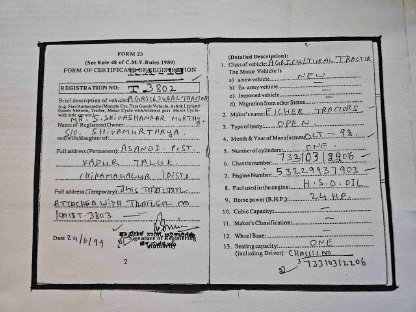 FORM 23
(See Rule 48 of C.M.V. Rules 1989)
FORM OF CERTIFICATE OF REGISTRATION
REGISTRATION NO: T. 3802
Brief description of vehicle: AGRICULTURAL TRACTOR
Name of Registered Owner: S. SHIVASHANKAR MURTHY
S/O. SHIVAMURTHAYA
Full address (Permanent): ASANDI POST.
KADUR TALUK
CHIKAMAGALUR (DIST)
Full address (Temporary): THIS TRACTOR
ATTACHED WITH TRAILER NO
3803
Date 24/6/99
Signature of Registering
Authority
2
(Detailed Description):
1. Class of vehicle: AGRICULTURAL TRACTOR
The Motor Vehicle is
a) a new vehicle NEW
b) Ex. army vehicle
c) Imported vehicle
d) Migration from other States
2. Maker's name: EICHER TRACTORS
3. Type of body: OPEN
4. Month & Year of Manufacture: OCT - 98.
5. Number of cylinders: ONE
6. Chassis number
7. Engine Number:
8. Fuel used in the engine: H.S.D. OIL
9. Horse power (B.H.P.) 24 HP.
10. Cubic Capacity:
11. Maker's Classification:
12. Wheel Base:
13. Seating capacity: ONE
(including Driver)